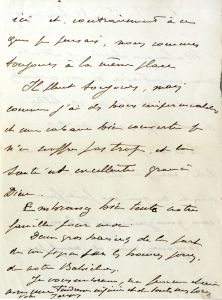 ici et, contrairement à ce
que je pensais, nous sommes
toujours à la même place
Il pleut toujours, mais
comme j'ai de bons imperméables
et une cabane bien couverte je
n'en souffre pas trop, et ma
santé est excellente grâce à
Dieu.
Embrassez bien toute notre
famille pour moi.
Deux gros baisers de la part
de son papa sur les bonnes joues
de notre
Je vous